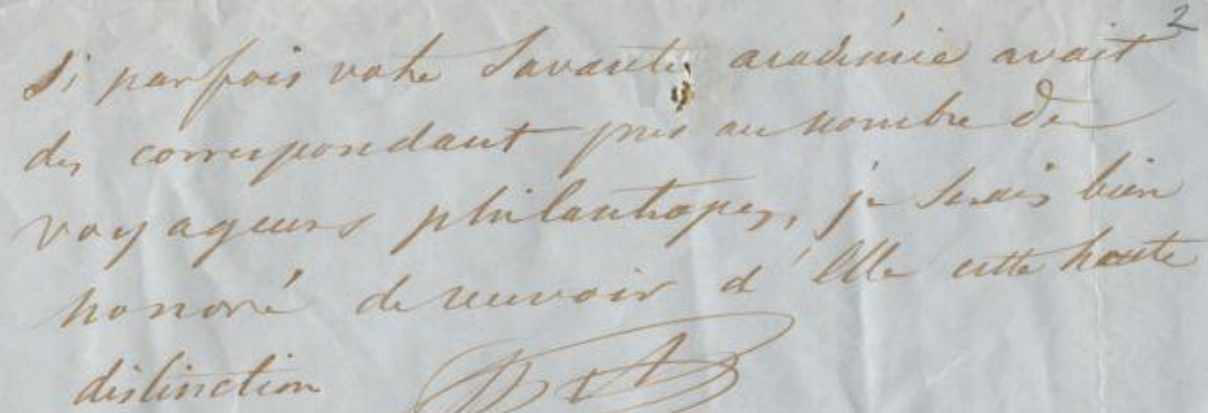 2
Si parfois votre Savante académie avait
des correspondant pris au nombre des
voyageurs philantropes, je serais bien
honoré de recevoir d'Elle cette haute
distinction